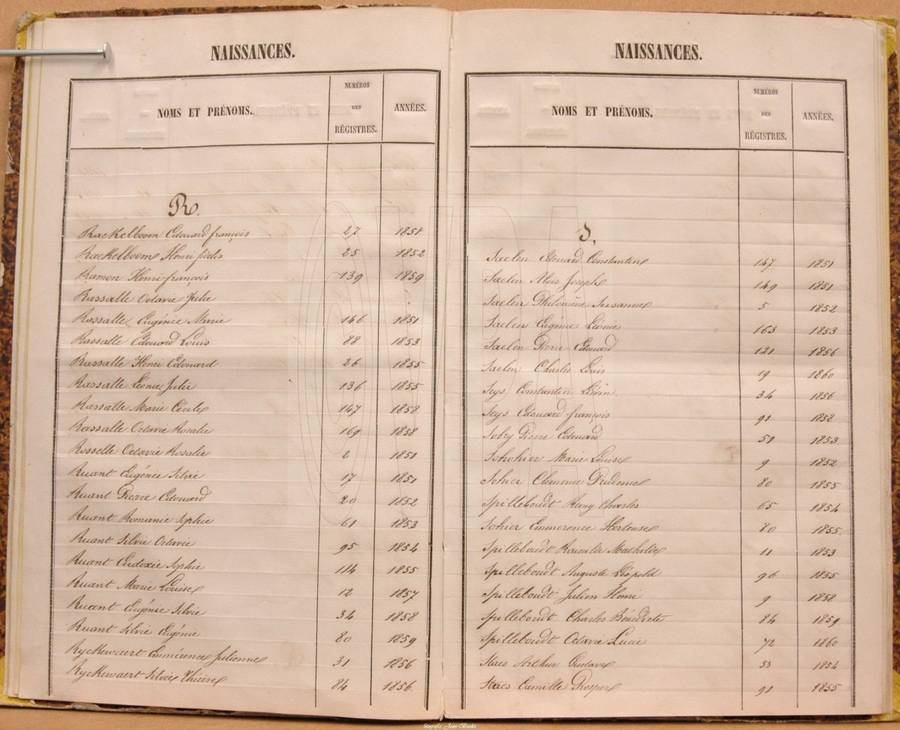 NAISSANCES.
NOMS ET PRÉNOMS. NUMÉROS DES RÉGISTRES. ANNÉES.
R.
Raekelboom Edouard françois 27 1851
Raekelboom Henri fidèle 25 1852
Ramon Henri françois 139 1859
Rassalle Octavie Julie
Rassalle Eugénie Marie 146 1851
Rassalle Edouard Louis 88 1853
Rassalle Henri Edouard 26 1855
Rassalle Leonie Julie 136 1855
Rassalle Marie Cécile 147 1858
Rassalle Octavie Rosalie 169 1858
Rosselle Octavie Rosalie 1851
Ruant Eugénie Silvie 17 1851
Ruant Pierre Edouard 20 1852
Ruant Romanie Sophie 61 1853
Ruant Silvie Octavie 95 1854
Ruant Eudoxie Sophie 114 1855
Ruant Marie Louise 12 1857
Ruant Eugénie Silvie 34 1858
Ruant Silvie Eugénie 80 1859
Ryckewaert Emmérence Julienne 31 1856
Ryckewaert Silvie 84 1856
NAISSANCES.
NOMS ET PRÉNOMS. NUMÉROS DES RÉGISTRES. ANNÉES.
S.
Saelen Edouard Constantin 147 1851
Saelen Aloïs Joseph 149 1851
Saelen Philomène Susanne 5 1852
Saelen Eugénie Léonie 163 1853
Saelen Pierre Edouard 121 1856
Saelen Charles Louis 19 1860
Seys Constantin 34 1856
Seys Edouard françois 91 1858
Pierre Edouard 51 1853
Marie Louise 9 1852
Sohier Clémence Prudence 80 1855
Spilleboudt Charles 65 1854
Sohier Emmerence Hortense 80 1855
Spilleboudt Mathilde 11 1853
Spilleboudt Auguste Léopold 96 1855
Spilleboudt Julien Henri 9 1858
Spilleboudt Charles Bénédicte 84 1859
Spilleboudt Octavie Lucie 72 1860
Staes Arthur Gustave 1854
Staes Camille Prosper 91 1855